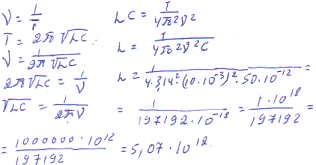 V = 1/T
T = 2π√LC
V = 1/2π√LC
2π√LC = 1/V
√LC = 1/2πV
LC = 1/4π²V²
L = 1/4π²V²C
L = 1/4·3,14²·(10·10⁻³)²·50·10⁻¹² =
= 1/197192·10⁻¹⁸ = 1·10¹⁸/197192 =
= 1000000·10¹²/197192 = 5,07·10¹²